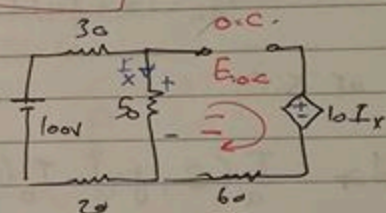 3Ω O.C.
I
x +
E.o.c
5Ω
100V
-
+
-
10 Ix
2Ω 6Ω